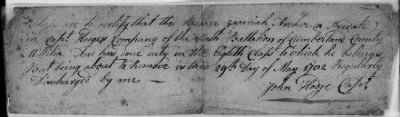 is to certify that the Bearer Zachariah Archer a Private
in Capt. Hoges Company of the Sixth Battalion of Cumberland County
Militia Has done duty in the Eighth Class to which he belongs
But being about to Remove is this 29th Day of May 1782 Regularly
Discharged by me
John Hoge Capt.